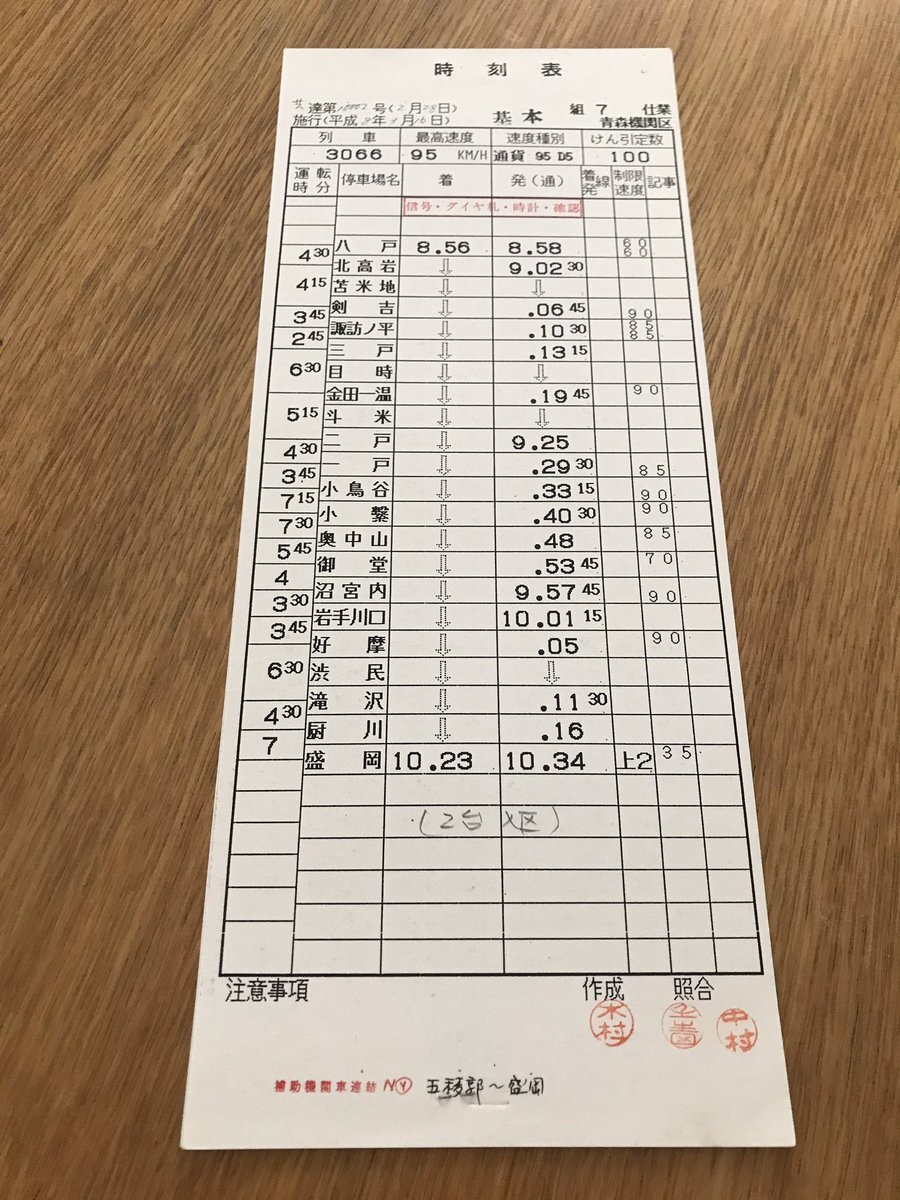 時刻表
達第10002号(2月28日)
施行(平成8年3月16日) 基本 組 7 仕業
青森機関区
列車 最高速度 速度種別 けん引定数
3066 95 KM/H 通貨 95 D5 100
運転時分 停車場名 着 発(通) 着発線 制限速度 記事
信号・ダイヤ札・時計・確認
八戸 8.56 8.58 60 60
4 30
北高岩 ⇩ 9.02 30
4 15
苫米地 ⇩ ⇩
剣吉 ⇩ .06 45 90
3 45
諏訪ノ平 ⇩ .10 30 85 85
2 45
三戸 ⇩ .13 15
6 30
目時 ⇩ ⇩
金田一温 ⇩ .19 45 90
5 15
斗米 ⇩ ⇩
二戸 ⇩ 9.25
4 30
一戸 ⇩ .29 30 85
3 45
小鳥谷 ⇩ .33 15 90
7 15
小繋 ⇩ .40 30 90
7 30
奥中山 ⇩ .48 85
5 45
御堂 ⇩ .53 45 70
4
沼宮内 ⇩ 9.57 45 90
3 30
岩手川口 ⇩ 10.01 15
3 45
好摩 ⇩ .05 90
6 30
渋民 ⇩ ⇩
滝沢 ⇩ .11 30
4 30
厨川 ⇩ .16
7
盛岡 10.23 10.34 上2 35
(2台
注意事項 作成 照合
木村 中村
補助機関車連結 N Y 五稜郭〜盛岡